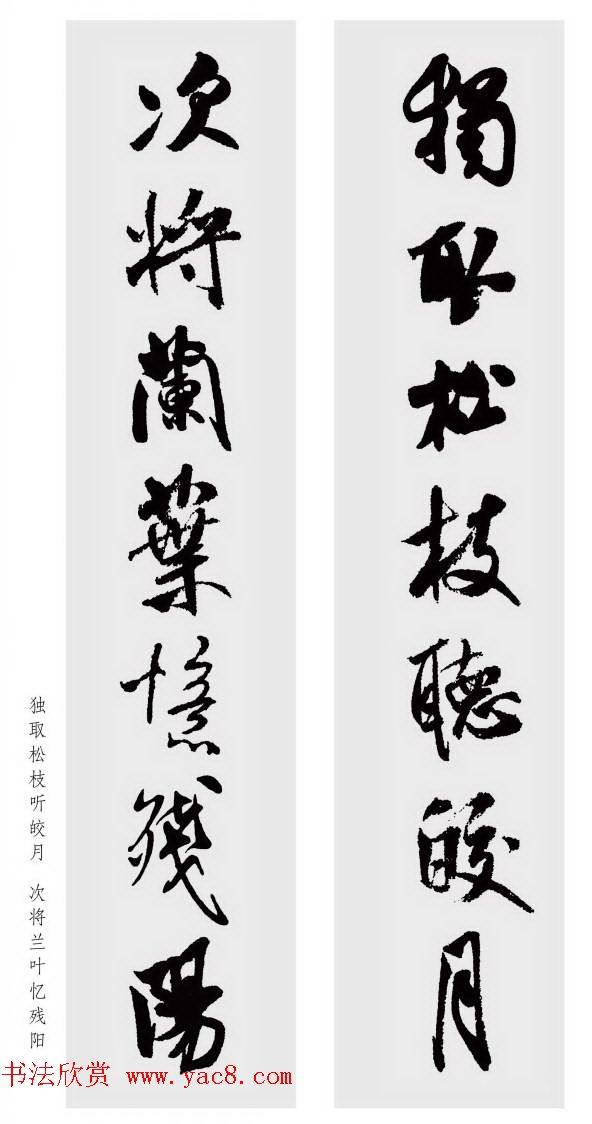 獨取松枝聽皎月
次將蘭葉憶殘陽
独取松枝听皎月　次将兰叶忆残阳
书法欣赏 www.yac8.com